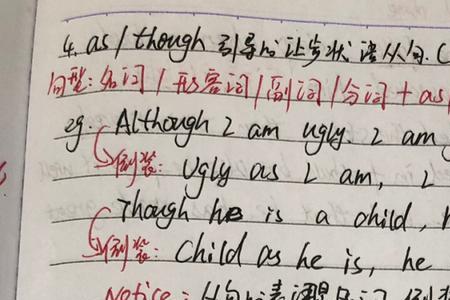 4. as / though 引导的让步状语从句. (
句型: 名词 / 形容词 / 副词 / 分词 + as
eg. Although I am ugly. I am
倒装: Ugly as I am, I
Though he is a child, h
倒装: Child as he is, he
Notice: 从句